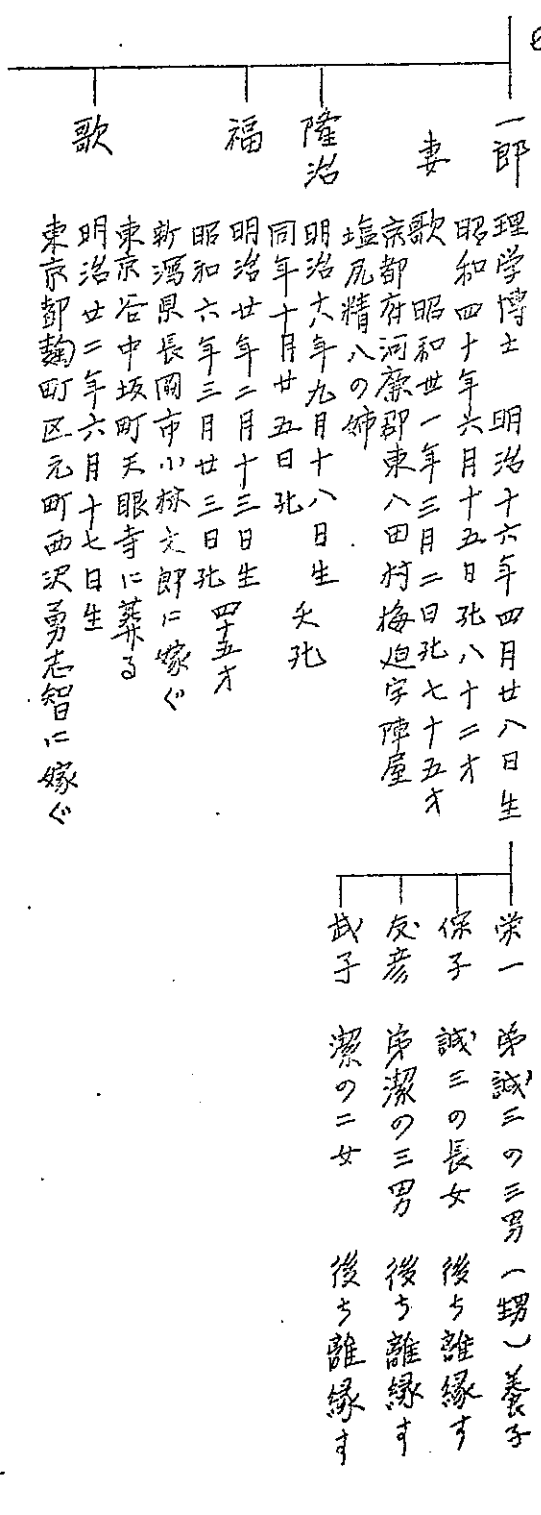 一郎 理学博士 明治十六年四月廿八日生
昭和四十年六月十五日死八十二才
妻 歌 昭和卅一年三月二日死七十五才
京都府河鹿郡東八田村梅迫字陣屋
塩尻精八の姉
隆治 明治十八年九月十八日生
同年十月廿五日死 夭死
福 明治廿年二月十三日生
昭和六年三月廿三日死 四十五才
新潟県長岡市小林文郎に嫁ぐ
東京谷中坂町天眼寺に葬る
歌 明治廿二年六月十七日生
東京都麴町区元町西沢勇志智に嫁ぐ
栄一 弟誠三の三男(甥)養子
保子 誠三の長女 後ち離縁す
友彦 弟潔の三男 後ち離縁す
武子 潔の二女 後ち離縁す